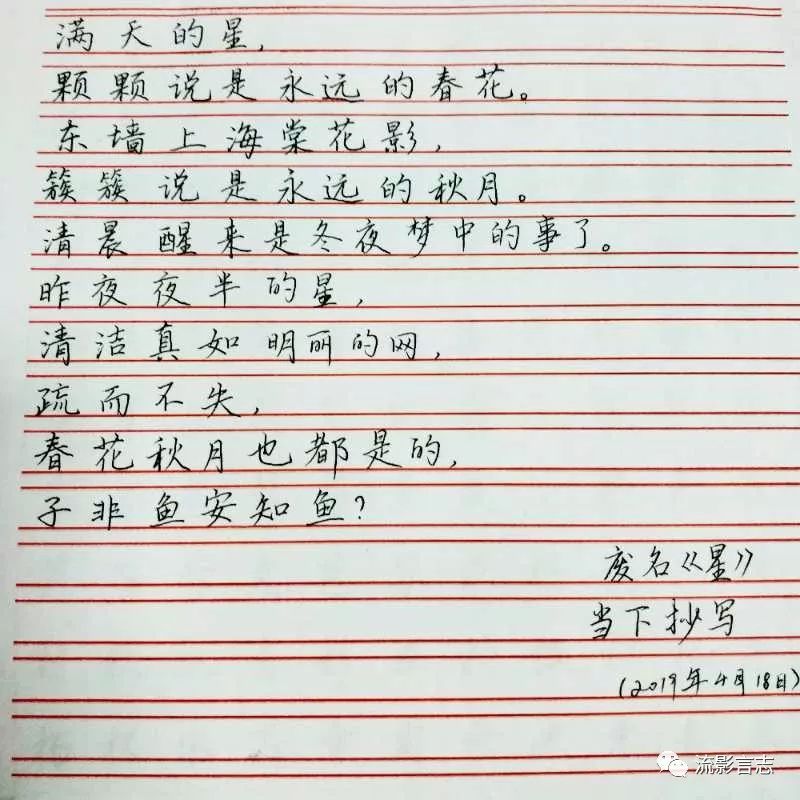 满天的星，
颗颗说是永远的春花。
东墙上海棠花影，
簇簇说是永远的秋月。
清晨醒来是冬夜梦中的事了。
昨夜夜半的星，
清洁真如明丽的网，
疏而不失，
春花秋月也都是的，
子非鱼安知鱼？
废名《星》
当下抄写
（2019年4月18日）
流影言志